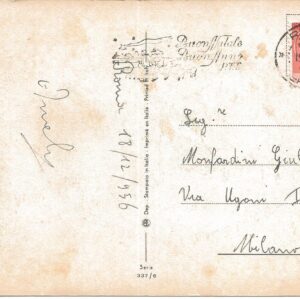 Buon Natale
Buon Anno
Roma 18/12/956
Dep. Stampato in Italia - Imprimé en Italie - Printed in Italy
Serie
337/6
Seg.
Monfardini Giul
Via Ugoni
Milano